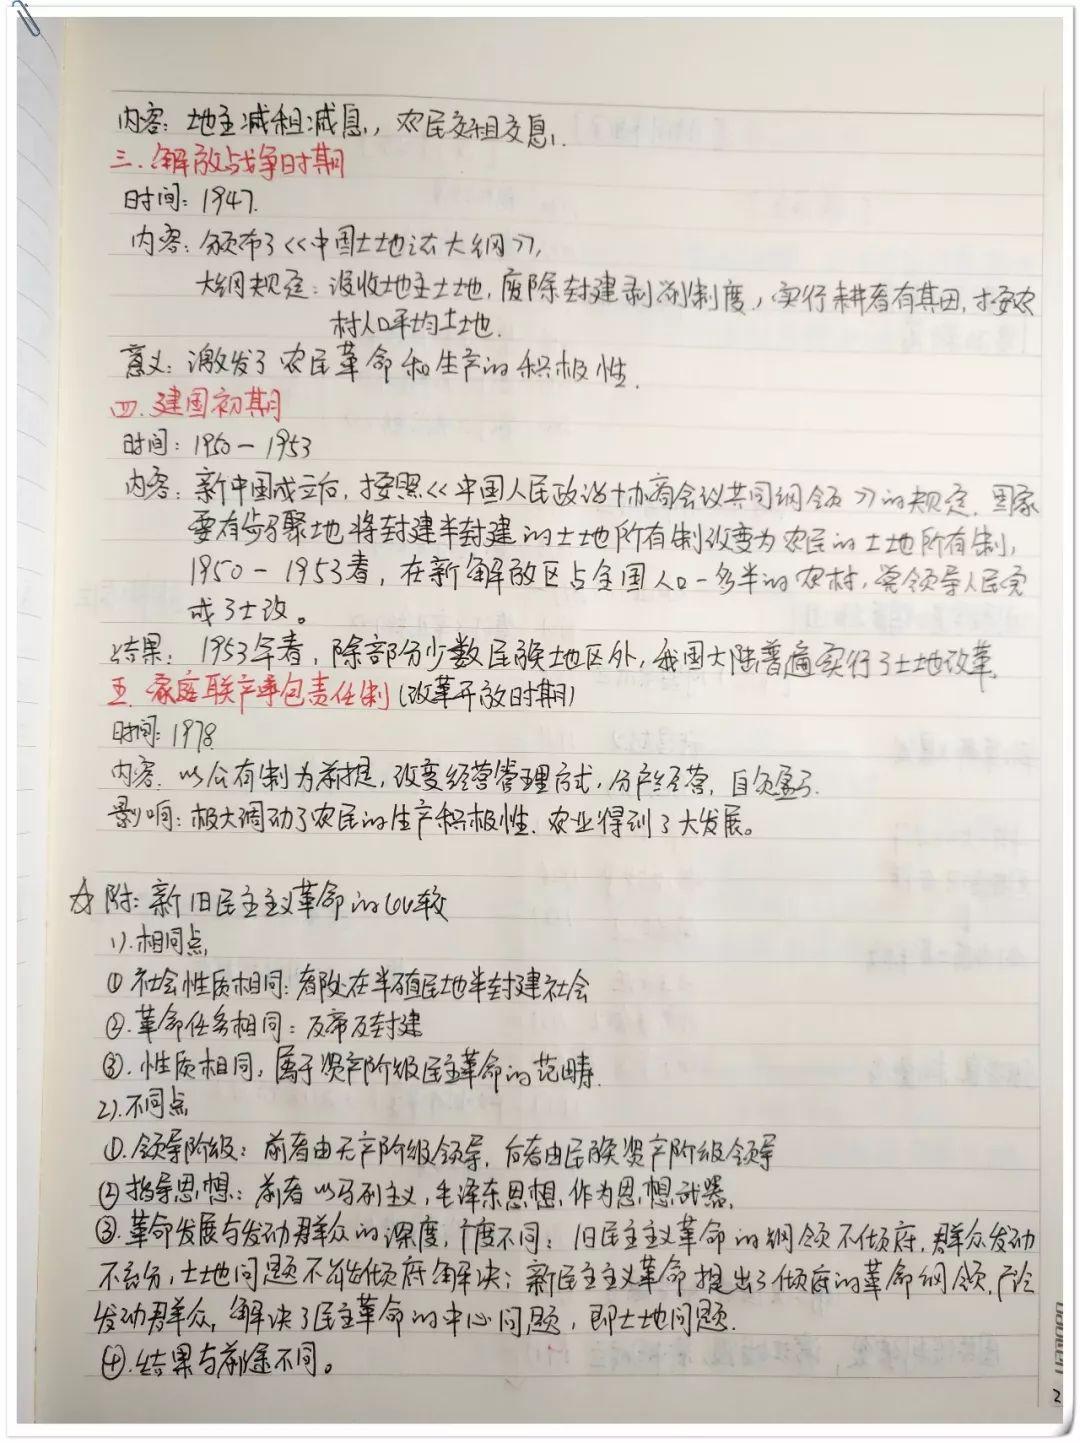 内容：地主减租减息，农民交租交息.
三.解放战争时期
时间：1947.
内容：颁布了《中国土地法大纲》，
大纲规定：没收地主土地，废除封建剥削制度，实行耕者有其田，按农
村人口平均土地.
意义：激发了农民革命和生产的积极性.
四.建国初期
时间：1950—1953
内容：新中国成立后，按照《中国人民政治协商会议共同纲领》的规定.国家
要有步骤地将封建半封建的土地所有制改变为农民的土地所有制，
1950—1953春，在新解放区占全国人口一多半的农村，党领导人民完
成了土改。
结果：1953年春，除部分少数民族地区外，我国大陆普遍实行了土地改革.
五.家庭联产承包责任制(改革开放时期)
时间：1978.
内容.以公有制为前提，改变经营管理方式，分户经营，自负盈亏.
影响：极大调动了农民的生产积极性.农业得到了大发展。
☆附：新旧民主主义革命的比较
1).相同点
①社会性质相同：都处在半殖民地半封建社会
②.革命任务相同：反帝反封建
③.性质相同，属于资产阶级民主革命的范畴.
2).不同点
①.领导阶级：前者由无产阶级领导，后者由民族资产阶级领导
②指导思想：前者以马列主义，毛泽东思想，作为思想武器.
③.革命发展与发动群众的深度，广度不同：旧民主主义革命的纲领不彻底，群众发动
不充分，土地问题不能彻底解决；新民主主义革命提出了彻底的革命纲领，广泛
发动群众，解决了民主革命的中心问题，即土地问题.
④.结果与前途不同。
2